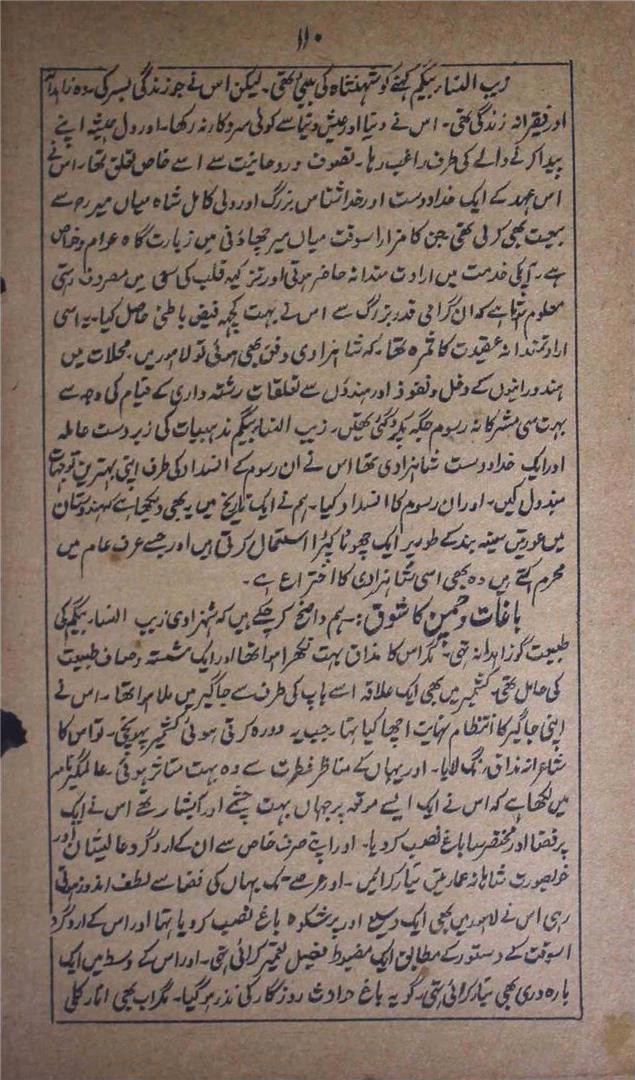 ۱۱۰
زیب النساء بیگم کہنے کو شہنشاہ کی بیٹی تھی۔ لیکن اس نے جو زندگی بسر کی۔ وہ زاہدانہ
اور فقیرانہ زندگی تھی۔ اس نے دنیا اور عیش دنیا سے کوئی سروکار نہ رکھا۔ اور دل ہمیشہ اپنے
پیدا کرنے والے کی طرف راغب رہا۔ تصوف و روحانیت سے اسے خاص تعلق تھا۔ اس نے
اس عہد کے ایک خدا دوست اور خدا شناس بزرگ اور ولی کامل شاہ میاں میر رح سے
بیعت بھی کر لی تھی جن کا مزار اسوقت میاں میر چھاؤنی میں زیارت گاہ عوام و خاص
ہے۔ آپکی خدمت میں ارادت مندانہ حاضر ہوتی اور تزکیہ قلب کی سعی میں مصروف رہتی
معلوم ہوتا ہے کہ ان گرامی قدر بزرگ سے اس نے بہت کچھ فیض باطنی حاصل کیا۔ یہ اسی
ارادتمندانہ عقیدت کا ثمرہ تھا۔ کہ شاہزادی وفق بھی ہوئی تو لاہور میں۔ محلات میں
ہندو رانیوں کے دخل و نفوذ اور ہندؤں سے تعلقات رشتہ داری کے قیام کی وجہ سے
بہت سی مشرکانہ رسوم جگہ پکڑ گئی تھیں۔ زیب النساء بیگم مذہبیات کی زبردست عاملہ
اور ایک خدا دوست شاہزادی تھا اس نے ان رسوم کے انسداد کی طرف اپنی بہترین توجہات
مبذول کیں۔ اور ان رسوم کا انسداد کیا۔ ہم نے ایک تاریخ میں یہ بھی دیکھا ہے کہ ہندوستان
میں عورتیں سینہ بند کے طور پر ایک چھوٹا کپڑا استعمال کرتی ہیں اور جسے عرف عام میں
محرم کہتے ہیں وہ بھی اسی شاہزادی کا اختراع ہے۔
باغات و چمن کا شوق :۔ ہم واضح کر چکے ہیں کہ شہزادی زیب النساء بیگم کی
طبیعت گو زاہدانہ تھی۔ مگر اس کا مذاق بہت نکھرا ہوا تھا اور ایک شستہ و صاف طبیعت
کی حامل تھی۔ کشمیر میں بھی ایک علاقہ اسے باپ کی طرف سے جاگیر میں ملا ہوا تھا۔ اس نے
اپنی جاگیر کا انتظام نہایت اچھا کیا تھا۔ جب یہ دورہ کرتی ہوئی کشمیر پہونچی۔ تو اس کا
شاعرانہ مذاق رنگ لایا۔ اور یہاں کے مناظر فطرت سے وہ بہت متاثر ہوئی۔ عالمگیر نامہ
میں لکھا ہے کہ اس نے ایک ایسے موقعہ پر جہاں بہت چشمے اور آبشار تھے اس نے ایک
پر فضا اور مختصر سا باغ نصب کر دیا۔ اور اپنے صرف خاص سے ان کے ارد گرد عالیشان اور
خوبصورت شاہانہ عمارتیں تیار کرائیں۔ اور عرصے تک یہاں کی فضا سے لطف اندوز ہوتی
رہی اس نے لاہور میں بھی ایک وسیع اور پر شکوہ باغ نصب کر دیا تھا اور اس کے ارد گرد
اسوقت کے دستور کے مطابق ایک مضبوط فصیل تعمیر کرائی تھی۔ اور اس کے وسط میں ایک
بارہ دری بھی تیار کرائی تھی۔ گو یہ باغ حوادث روزگار کی نذر ہو گیا۔ مگر اب بھی انار کلی